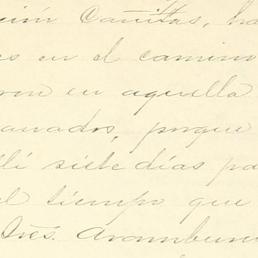 Cañitas, ha
es en el camino
ron en aquella
anados, porque
lli siete dias pa
el tiempo que
Ires. Aramburu